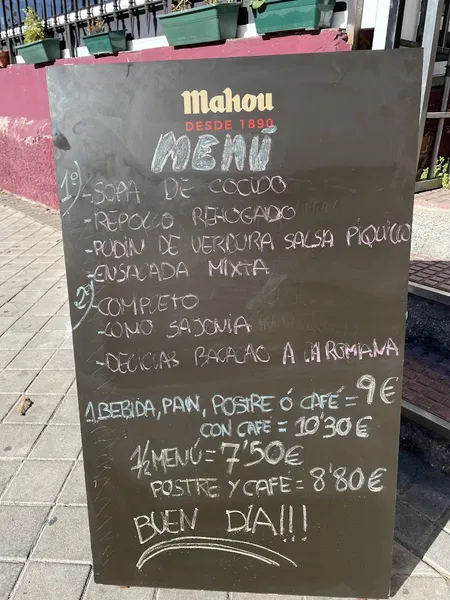 Mahou
DESDE 1890
MENÚ
1º) -SOPA DE COCIDO
-REPOLLO REHOGADO
-PUDIN DE VERDURA SALSA PIQUILLO
-ENSALADA MIXTA
2º) -COMPLETO
-LOMO SAJONIA
-DELICIAS BACALAO A LA ROMANA
1 BEBIDA, PAN, POSTRE Ó CAFÉ = 9€
CON CAFÉ = 10'30€
1/2 MENÚ = 7'50€
POSTRE Y CAFÉ = 8'80€
BUEN DÍA!!!